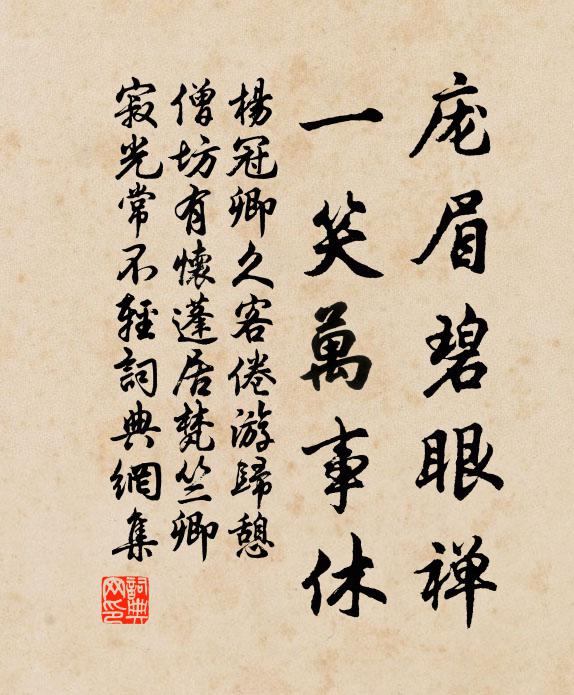 庞眉碧眼禅
一笑萬事休
楊冠卿久客倦游歸憩
僧坊有懷蓬居梵竺卿
寂光常不輕詞典網集
詞典網印